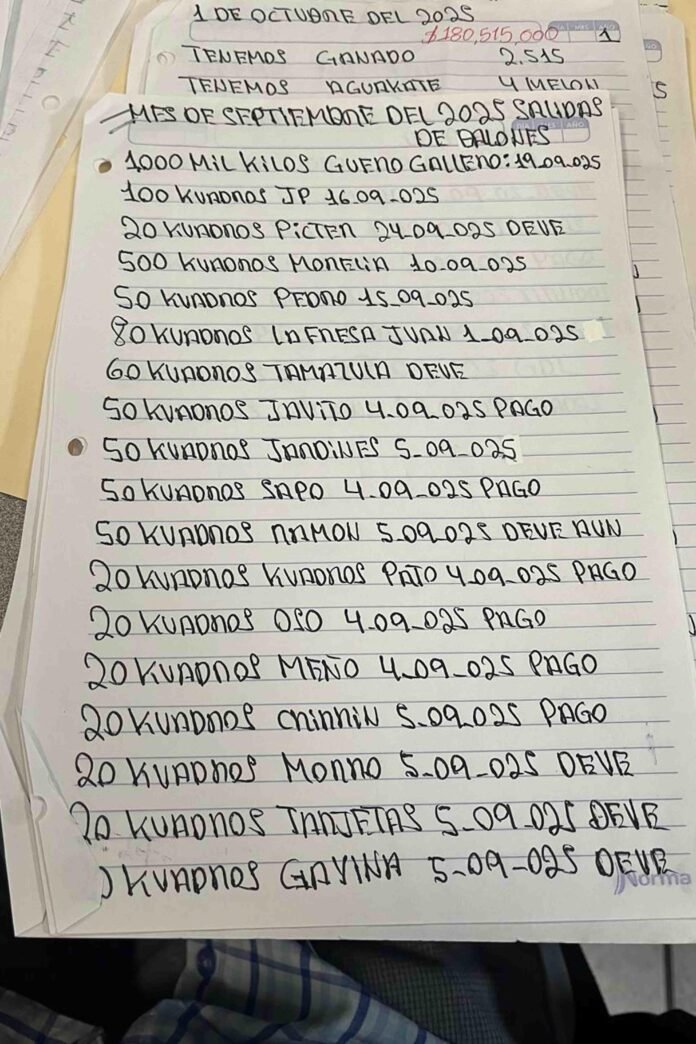 1 DE OCTUBRE DEL 2025
$180,515,000 1
TENEMOS GANADO 2,515
TENEMOS AGUAKATE 4 MELON
MES DE SEPTIEMBRE DEL 2025 SALIDAS
DE BALONES
1000 MIL KILOS GUERO GALLERO: 19.09.025
100 KUADROS JP 16.09_025
20 KUADROS PICTER 24.09_025 DEVE
500 KUADROS MORELIA 10.09_025
50 KUADROS PEDRO 15_09_025
80 KUADROS LA FRESA JUAN 1_09_025
60 KUADROS TAMAZULA DEVE
50 KUADROS JAVITO 4.09_025 PAGO
50 KUADROS JARDINES 5_09_025
50 KUADROS SAPO 4.09_025 PAGO
50 KUADROS RAMON 5.09.025 DEVE AUN
20 KUADROS KUADROS PATO 4.09_025 PAGO
20 KUADROS OSO 4.09_025 PAGO
20 KUADROS MEÑO 4_09_025 PAGO
20 KUADROS CHIRRIN 5_09.025 PAGO
20 KUADROS MORRO 5_09_025 DEVE
20 KUADROS TARJETAS 5_09_025 DEVE
KUADROS GAVINA 5_09_025 DEVE
Norma